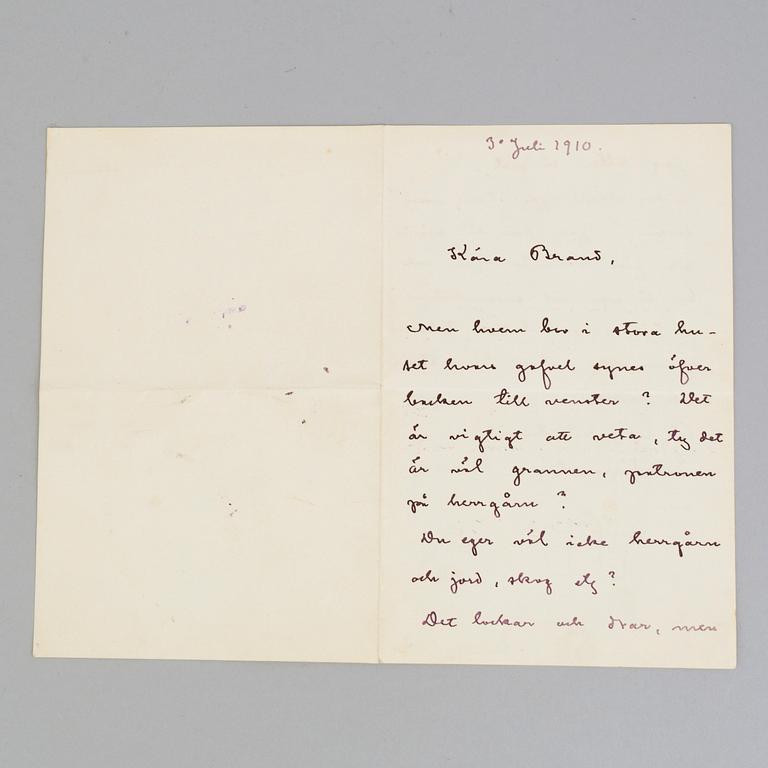 30 Juli 1910.
Kära Brand,
Men hvem bor i stora hu-
set hvars gafvel synes öfver
backen till venster ? Det
är vigtigt att veta, ty det
är väl grannen, patronen
på herrgårn ?
Du eger väl icke herrgårn
och jord, skog etz ?
Det lockar och drar, men